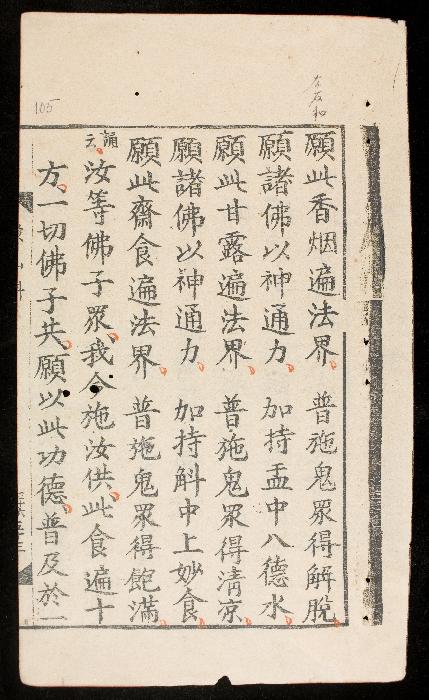 左右和
願此香烟遍法界　普施鬼眾得解脫
願諸佛以神通力　加持盂中八德水
願此甘露遍法界　普施鬼眾得清凉
願諸佛以神通力　加持斛中上妙食
願此齋食遍法界　普施鬼眾得飽滿
誦云　汝等佛子眾我今施汝供此食遍十
方一切佛子共願以此功德普及於一
105